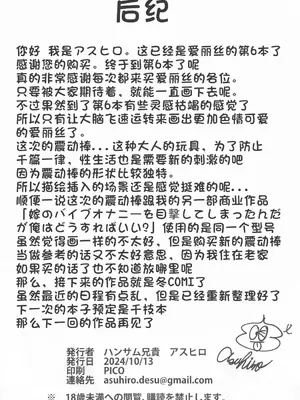 后纪
你好 我是アスヒロ。这已经是爱丽丝的第6本了
感谢您的购买。终于到第6本了呢
真的非常感谢每次都来买爱丽丝的各位。
只要被大家期待着、就能一直画下去呢。
不过果然到了第6本有些灵感枯竭的感觉了
所以只有让大脑飞速运转来画出更加色情可爱
的爱丽丝了。
这次的震动棒...这种大人的玩具，为了防止
千篇一律，性生活也是需要新的刺激的吧
因为震动棒的形状比较独特。
所以描绘插入的场景还是感觉挺难的呢...
顺便一说这次的震动棒跟我的另一部商业作品
「嫁のバイブオナニーを目撃してしまったんだ
が俺はどうすればいい?」使用的是同一个型号
虽然觉得画一样的不太好，但是购买新的震动棒
当做参考的话又不太好意思，因为我住在老家
如果买的话了也不知道放哪里呢
那么、接下来的作品就是冬COMI了
虽然最近的日程有点乱，但是已经重新整理好了
下一次的本子预定是千枝本
那么下一回的作品再见了
Asuhiro
発行者 ハンサム兄貴 アスヒロ
発行日 2024/10/13
印刷 PICO
連絡先 asuhiro.desu@gmail.com
※ 18歳未満への閲覧、購読を禁止します。